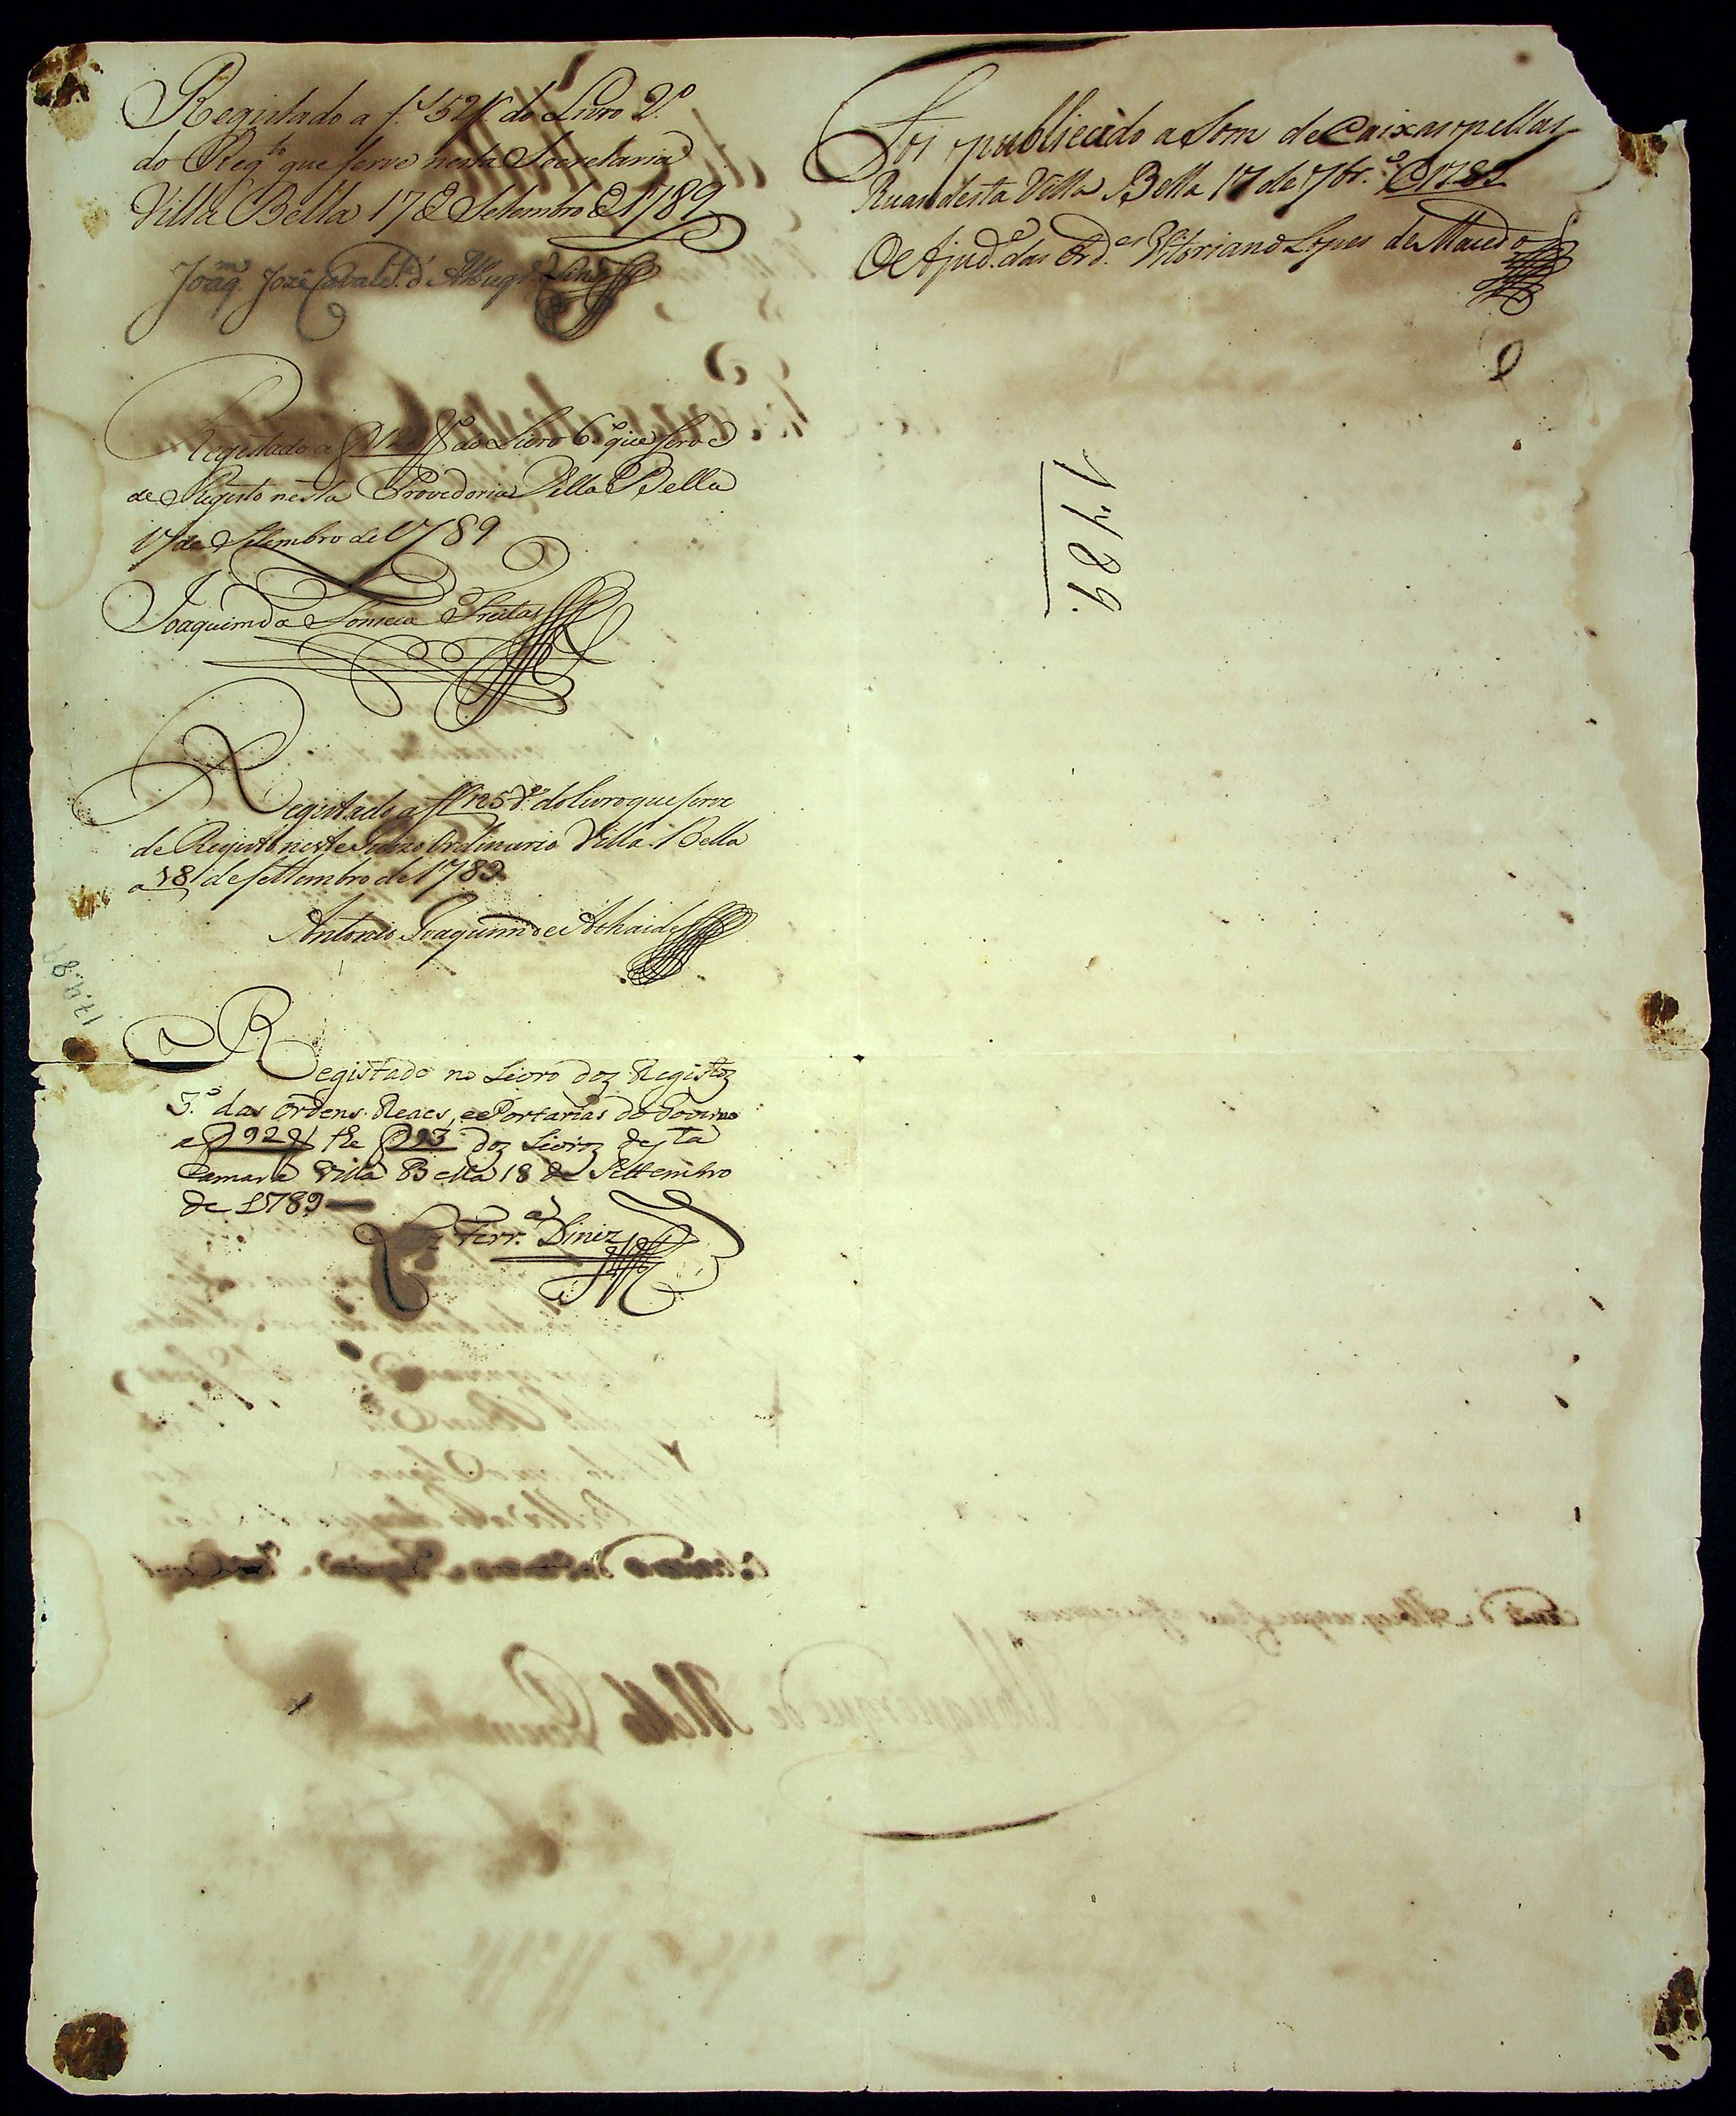 Registado a f.s 52 V. do Livro 2.º
do Reg.to que serve nesta Secretaria
Villa Bella 17 de Setembro de 1789
Joaq.m Jozé Cavalc.e d'Albuq.e Lins
Registado a do Livro 6.º que serve
de Registo nesta Provedoria Villa Bella
17 de Setembro de 1789
Joaquim da Fonseca Freitas
Registado a f 125 V.º do Livro que serve
de Registo neste Juizo Ordinario Villa Bella
a 18 de settembro de 1789
Antonio Joaquim de Athaide
Registado no Livro doz Registoz
3.º das Ordens Reaes, e Portarias do Governo
a f 92 V the f 93 doz Livroz desta
Camara Villa Bella 18 de Settembro
de 1789
Ferr.a Diniz
Foi publicado a som de Caixas pellas
Ruas desta Villa Bella 17 de 7br.º de 1789
O Ajud.e das Ord.es Vitoriano Lopes de Macedo
1789.
17.9.89